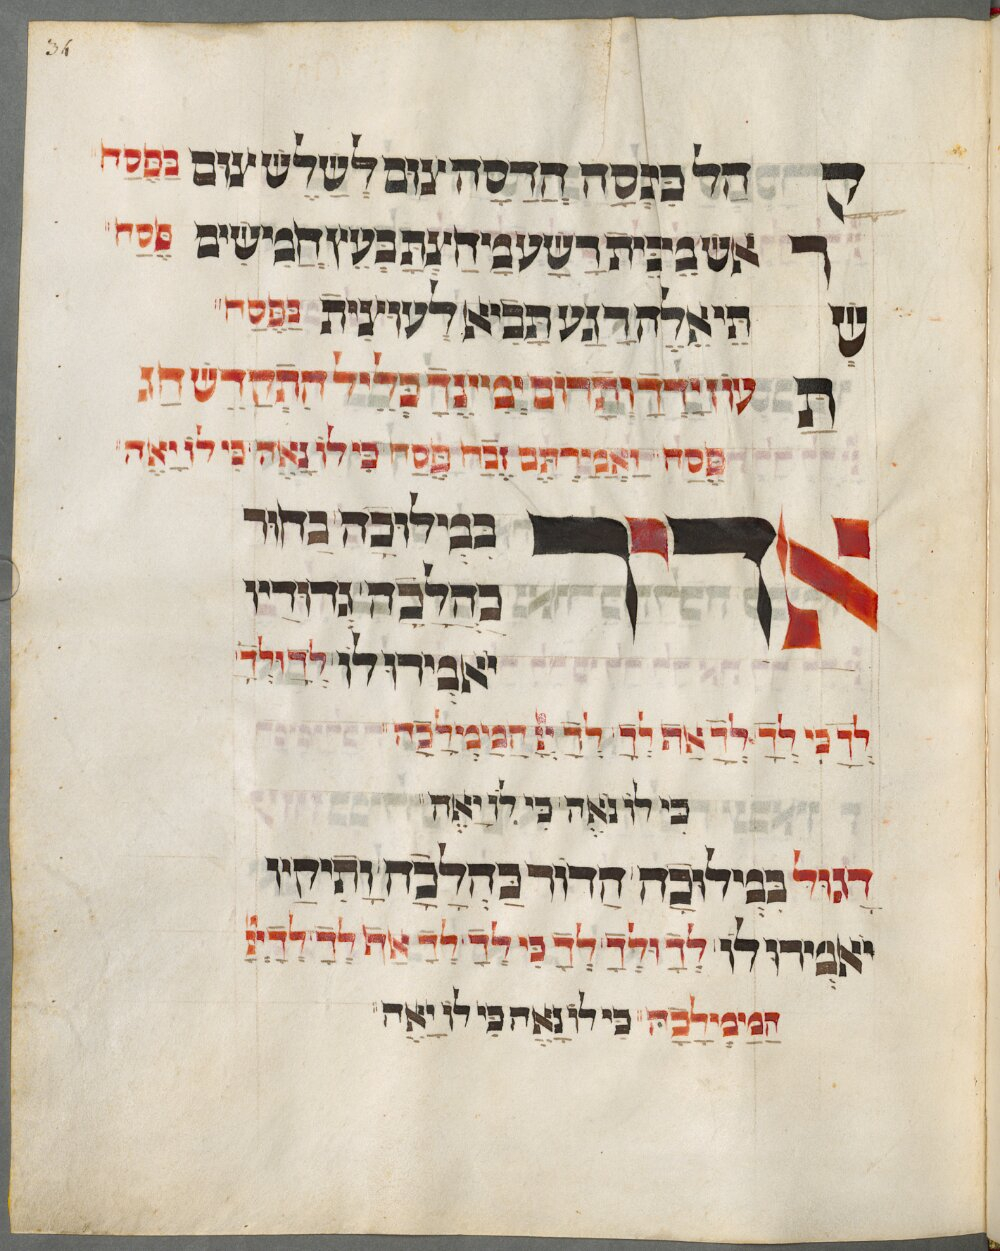 36
קהל כנסה הדסה צום לשלש צום בפסח
ראש מבית רשע מחצת בעץ חמישים פסח
שתי אלה רגע תביא לעוצית בפסח
תעוז ידך ותרום ימינך כליל התקדש חג
פסח ואמרתם זבח פסח כי לו נאה כי לו יאה
אדיר במילוכה בחור
כהלכה גדודיו
יאמרו לו לך ולך
לך כי לך לך את לך לך יי הממלכה
כי לו נאה כי לו יאה
דגול במילוכה הדור כהלכה ותיקיו
יאמירו לו לך ולך לך כי לך לך את לך לך יי
המימלכה כי לו נאה כי לו יאה